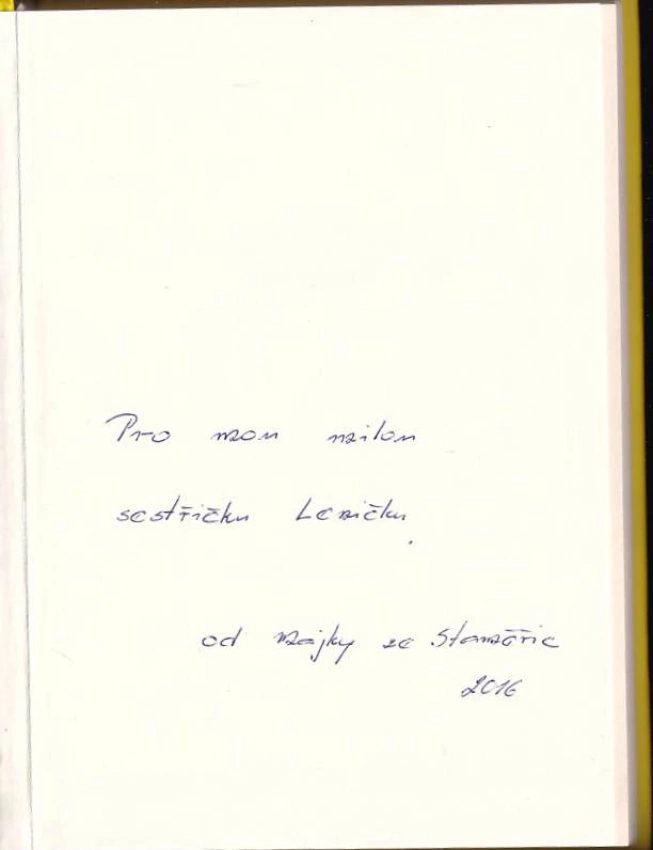 Pro mou milou
sestřičku Leničku.
od Májky ze Staměřic
2016